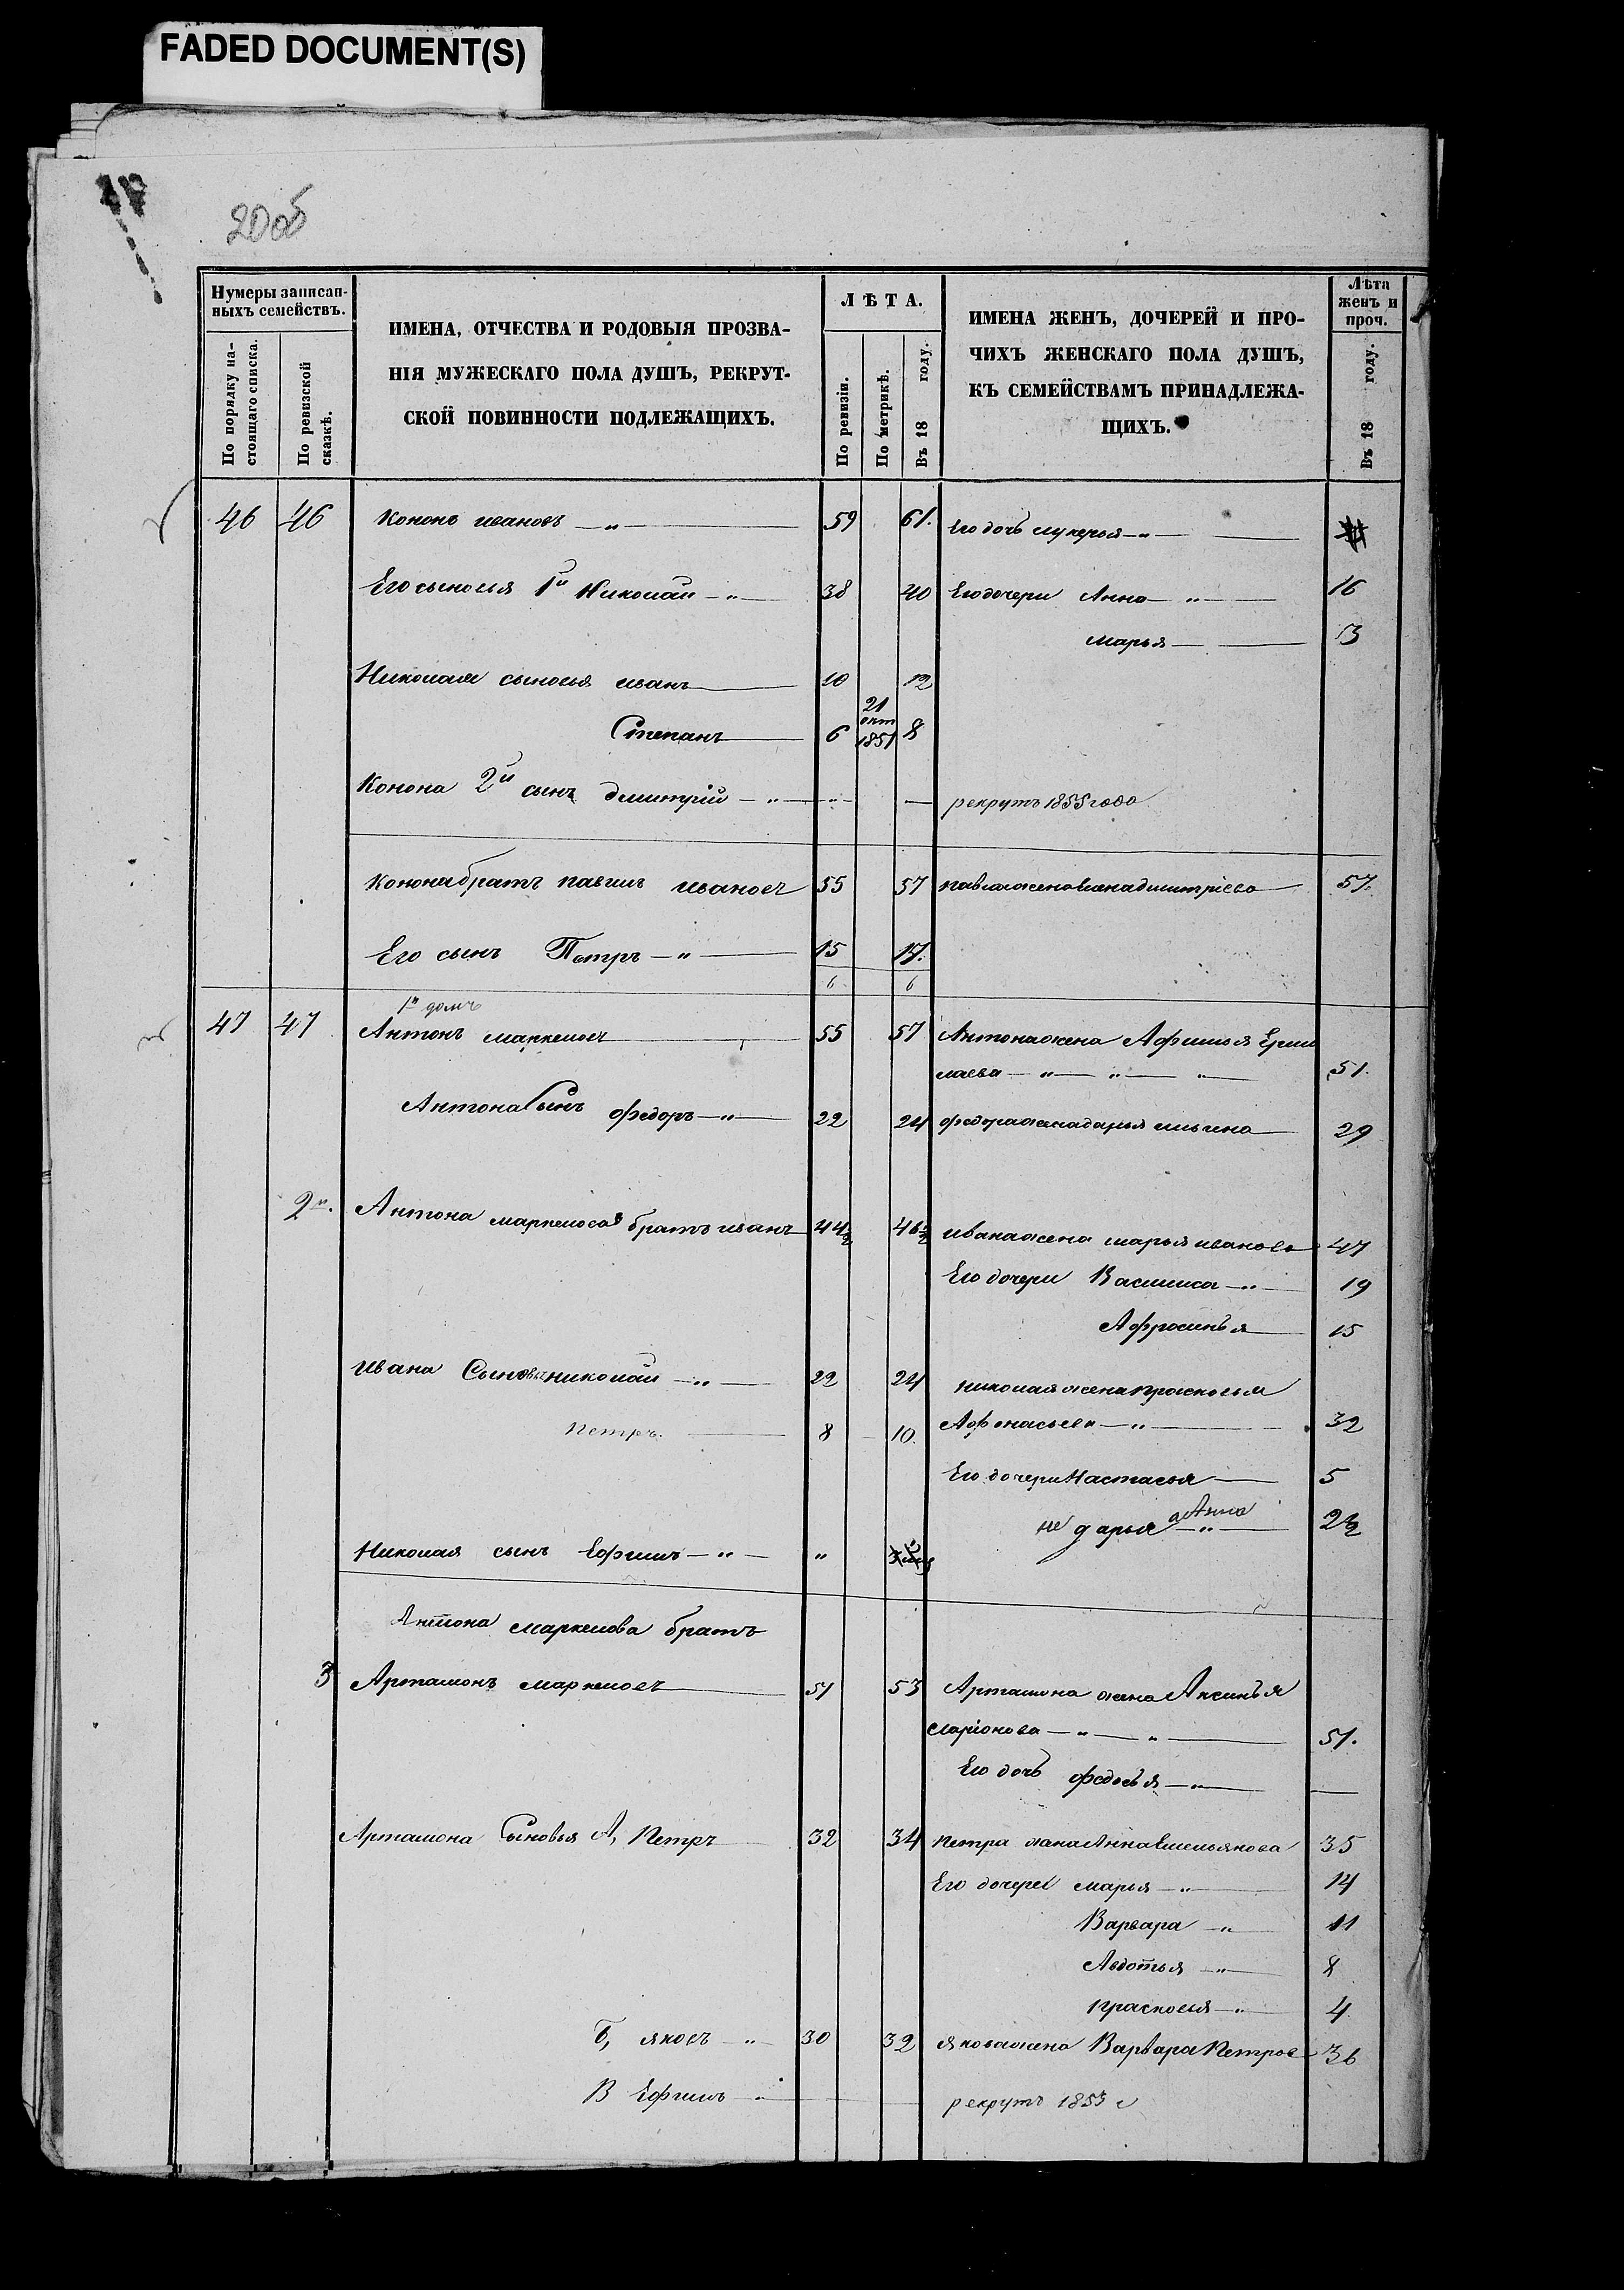 FADED DOCUMENT(S)
20об
Нумеры записан-
ныхъ семействъ.
По порядку на-
стоящаго списка.
По ревизской
сказкѣ.
ИМЕНА, ОТЧЕСТВА И РОДОВЫЯ ПРОЗВА-
НІЯ МУЖЕСКАГО ПОЛА ДУШЪ, РЕКРУТ-
СКОЙ ПОВИННОСТИ ПОДЛЕЖАЩИХЪ.
ЛѢТА.
По ревизіи.
По метрикѣ.
Въ 18 году.
ИМЕНА ЖЕНЪ, ДОЧЕРЕЙ И ПРО-
ЧИХЪ ЖЕНСКАГО ПОЛА ДУШЪ,
КЪ СЕМЕЙСТВАМЪ ПРИНАДЛЕЖА-
ЩИХЪ.
Лѣта
женъ и
проч.
Въ 18 году.
46 46 Кононъ ивановъ — „ — 59 61. Его дочь лукерья — „ —
Его сыновья 1й Николай — „ — 38 40 Его дочери Анна — „ — 16
марья — 13
Николая сыновья иванъ — 10 12
Степанъ — 6 21 окт 1851 8
Конона 2й сынъ дмитрій — „ — „ — — рекрутъ 1855 года
Конона братъ павилъ ивановъ 55 57 павла жена Елена дмитріева — 57.
Его сынъ Петръ — „ — 15 17.
6 6
1й домъ
47 47 Антонъ маркеловъ — 55 57 Антона жена Афимья Ерми
лаева — „ — „ — „ — 51.
Антона Сынъ федоръ — „ — 22 24 федора жена дарья ильина — 29
2й. Антона маркелова братъ иванъ 44½ 46½ ивана жена марья иванова 47
Его дочери Василиса — „ — 19
Афросинья — 15
Ивана Сыновья николай — „ — 22 24 николая жена прасковья
Афонасьева — „ — 32
Петръ. — 8 10.
Его дочери Настасья — 5
не дарья а Анна — „ — 2½
Николая сынъ Ефимъ — „ — „
Антона маркелова братъ
3 Артамонъ маркеловъ — 51 53 Артамона жена Аксинья
ларіонова — „ — „ — 51.
Его дочь федосья — „ — —
Артамона Сыновья А, Петръ 32 34 петра жена Анна Емельянова 35
Его дочери марья — „ — 14
Варвара — „ — 11
Авдотья — „ — 8
прасковья — „ — 4
Б, яковъ — „ — 30 32 якова жена Варвара Петрова 36
В Ефимъ — „ — рекрутъ 1853 г